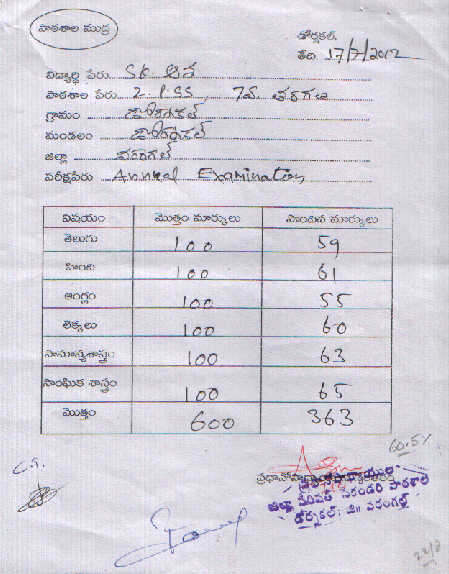 పాఠశాల ముద్ర
డోర్నకల్
తేది 17/7/2012
విద్యార్థి పేరు SK
పాఠశాల పేరు Z.P.SS, 7వ తరగతి
గ్రామం డోర్నకల్
మండలం డోర్నకల్
జిల్లా వరంగల్
పరీక్షపేరు Annual Examination
విషయం మొత్తం మార్కులు సాధించిన మార్కులు
తెలుగు 100 59
హిందీ 100 61
ఆంగ్లం 100 55
లెక్కలు 100 60
సామాన్యశాస్త్రం 100 63
సాంఘిక శాస్త్రం 100 65
మొత్తం 600 363
60.5%
జిల్లా పరిషత్ సెకండరి పాఠశాల
డోర్నకల్; జిll వరంగల్